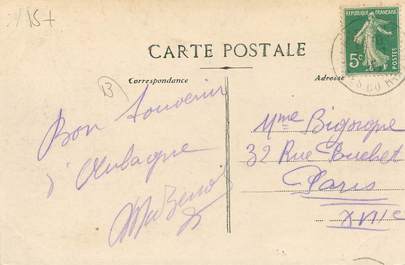 157
RÉPUBLIQUE FRANÇAISE
5c
POSTES
CARTE POSTALE
Correspondance
Adresse
13
Bon Souvenir
d'Aubagne
Mme Bigorgne
32 Rue Pouchet
Paris
XVIIe